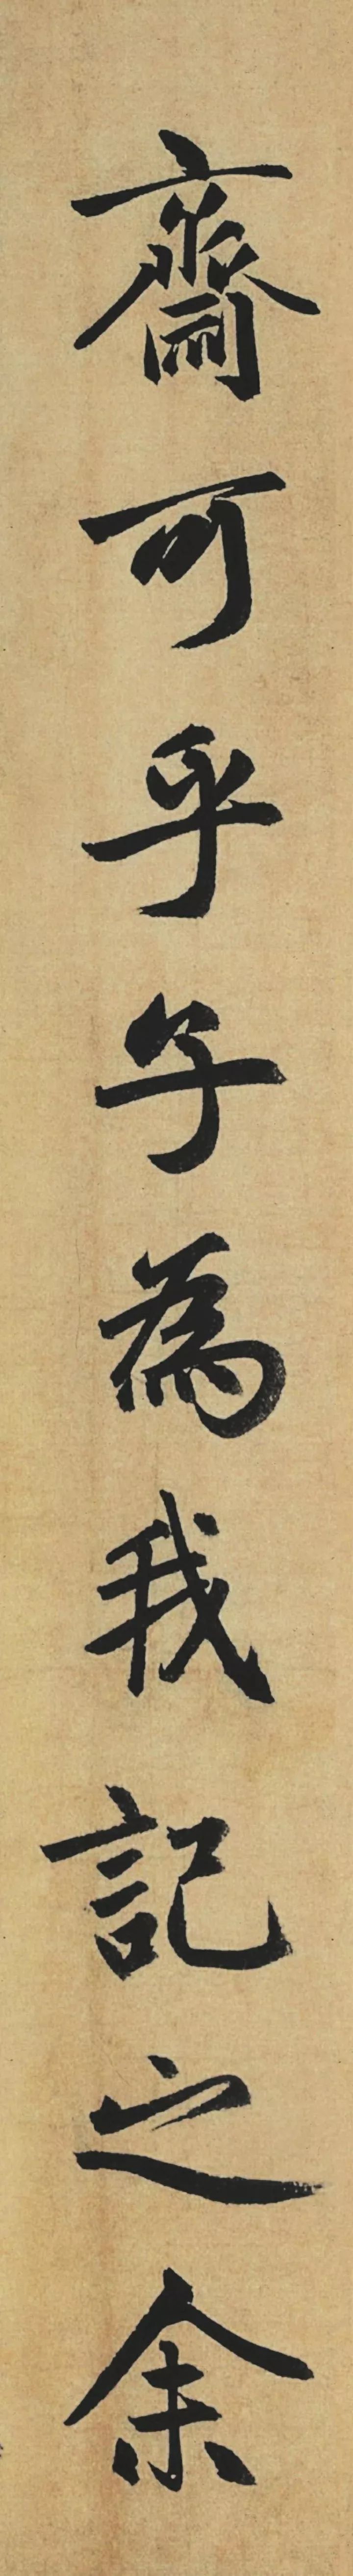 齋可乎子為我記之余